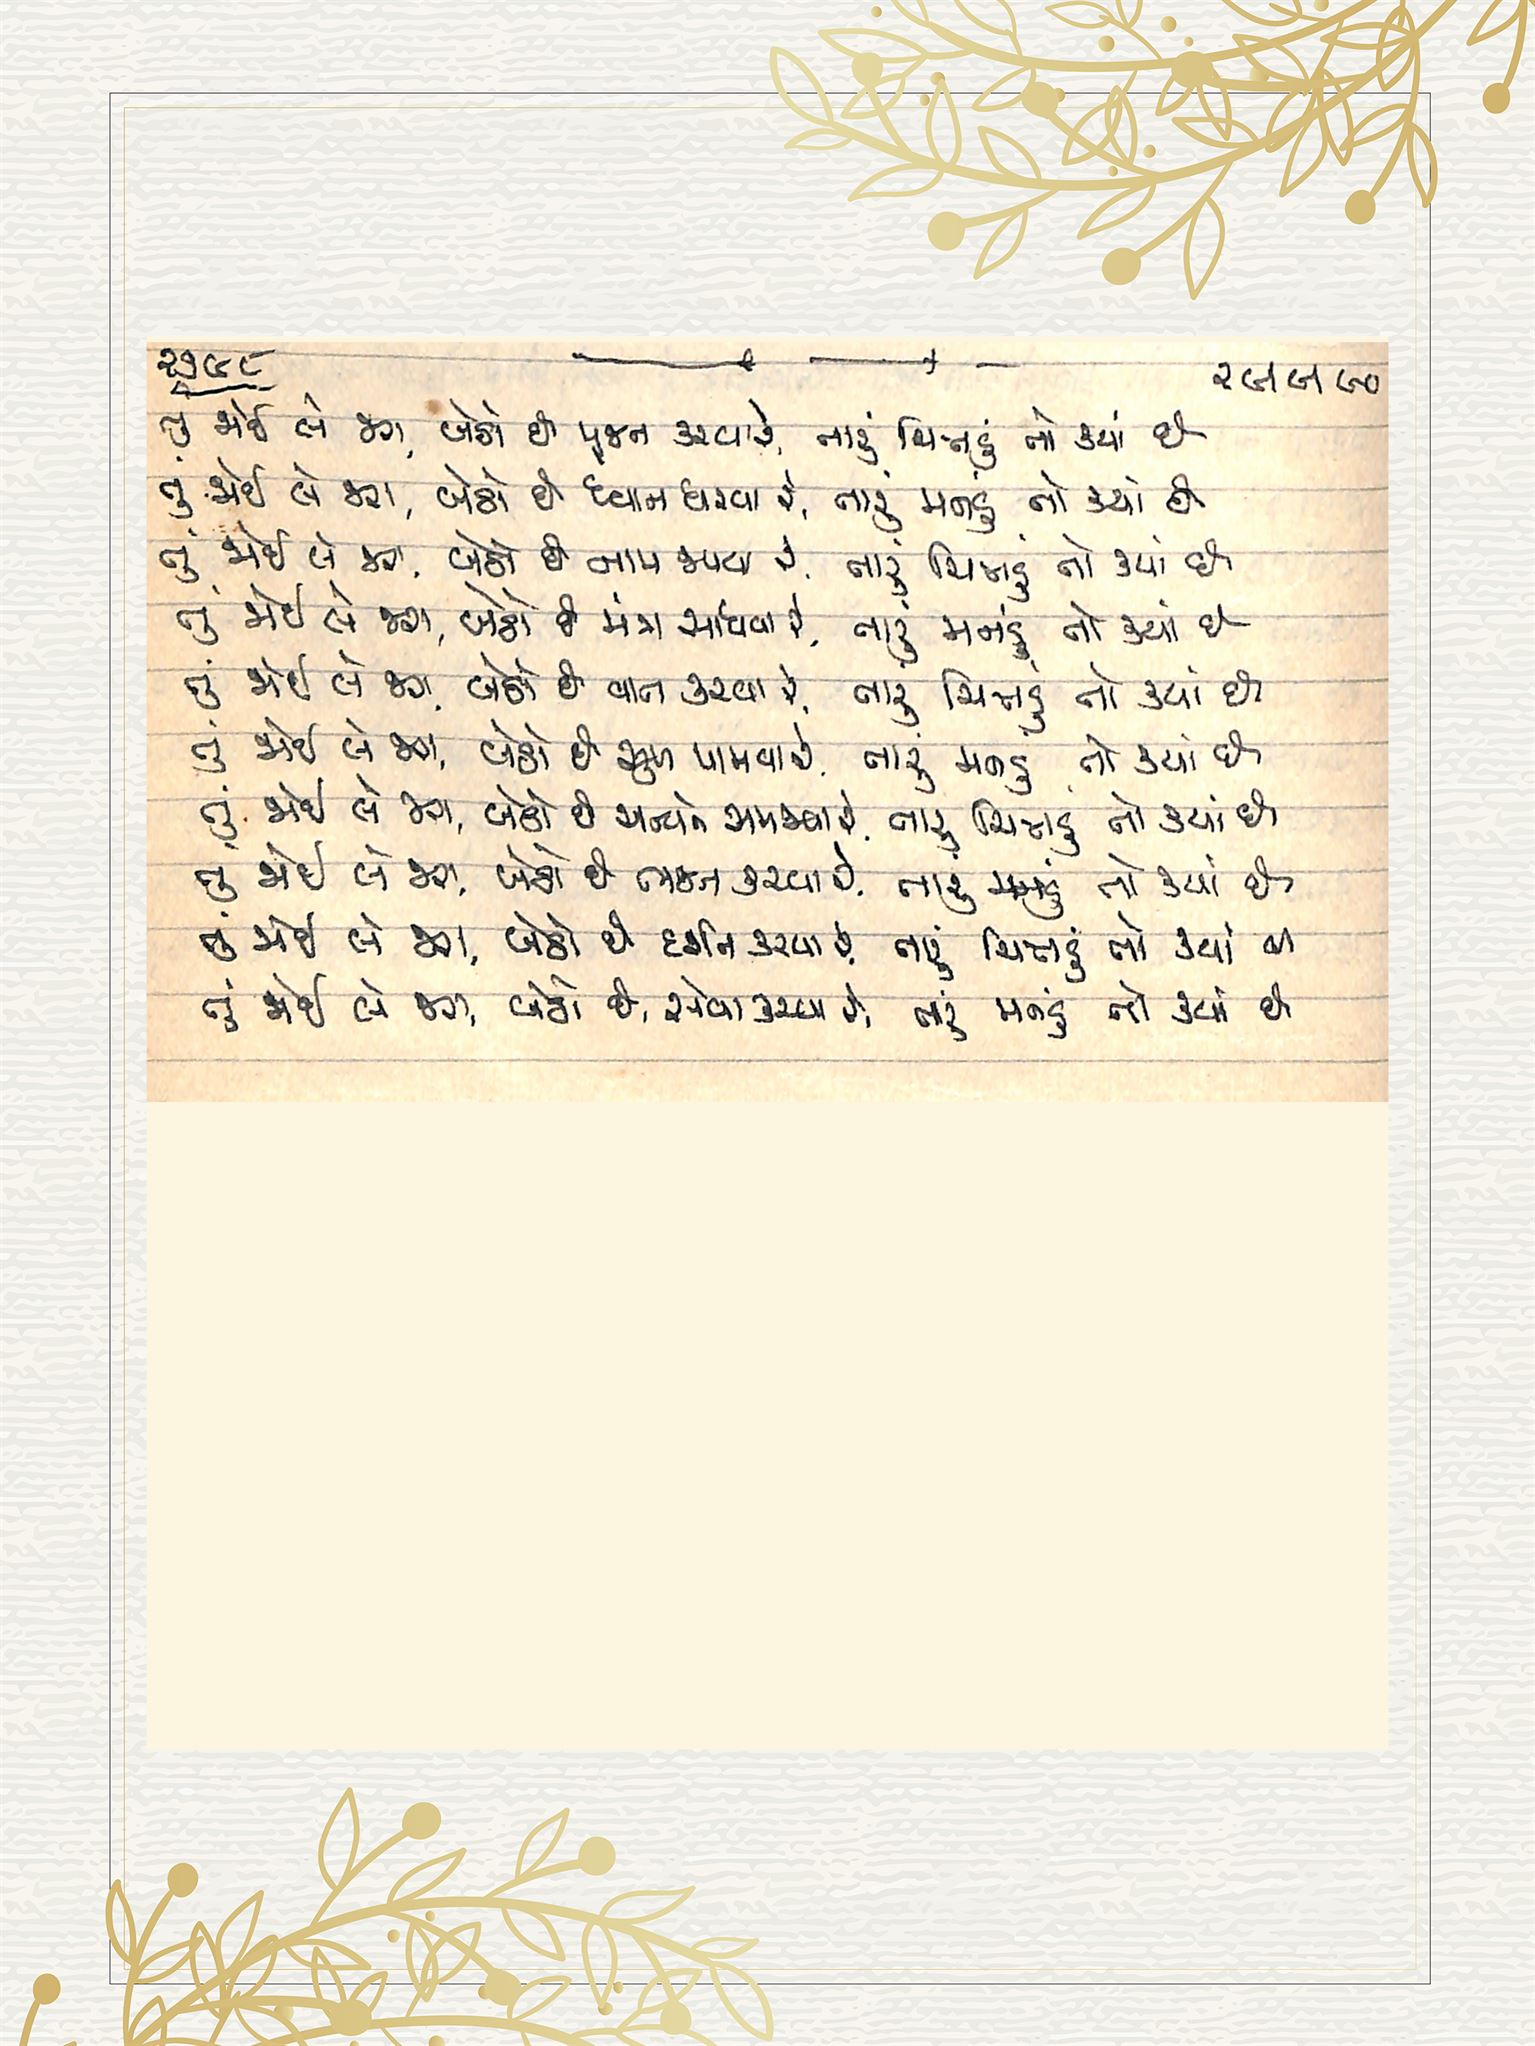 ૨૭૯૮
૨૯ ૯ ૯૦
તું જોઈ લે જરા, બેઠો છે પૂજન કરવા રે, તારું ચિત્તડું તો ક્યાં છે
તું જોઈ લે જરા, બેઠો છે ધ્યાન ધરવા રે, તારું મનડું તો ક્યાં છે
તું જોઈ લે જરા, બેઠો છે જાપ જપવા રે, તારું ચિત્તડું તો ક્યાં છે
તું જોઈ લે જરા, બેઠો છે મંત્ર સાધવા રે, તારું મનડું તો ક્યાં છે
તું જોઈ લે જરા, બેઠો છે વાત કરવા રે, તારું ચિત્તડું તો ક્યાં છે
તું જોઈ લે જરા, બેઠો છે સુખ પામવા રે, તારું મનડું તો ક્યાં છે
તું જોઈ લે જરા, બેઠો છે અન્યને સમજવા રે, તારું ચિત્તડું તો ક્યાં છે
તું જોઈ લે જરા, બેઠો છે ભજન કરવા રે, તારું મનડું તો ક્યાં છે
તું જોઈ લે જરા, બેઠો છે દર્શન કરવા રે, તારું ચિત્તડું તો ક્યાં છે
તું જોઈ લે જરા, બેઠો છે, સેવા કરવા રે, તારું મનડું તો ક્યાં છે